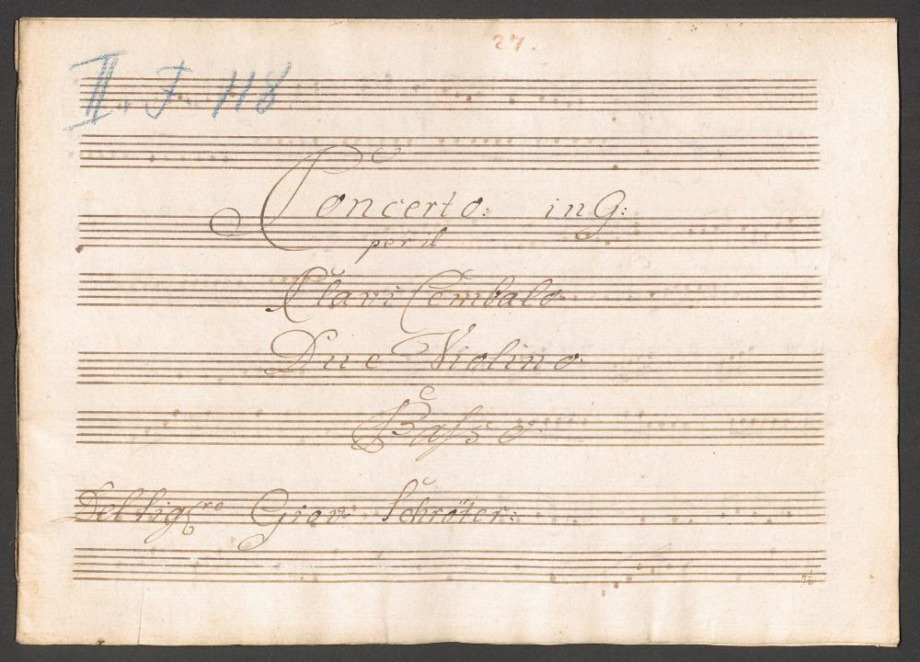 27.
II. J. 118
Concerto: in G:
per il
Clavi Cembalo
Due Violino
e
Basso
Del Sig:re Giov: Schröter: